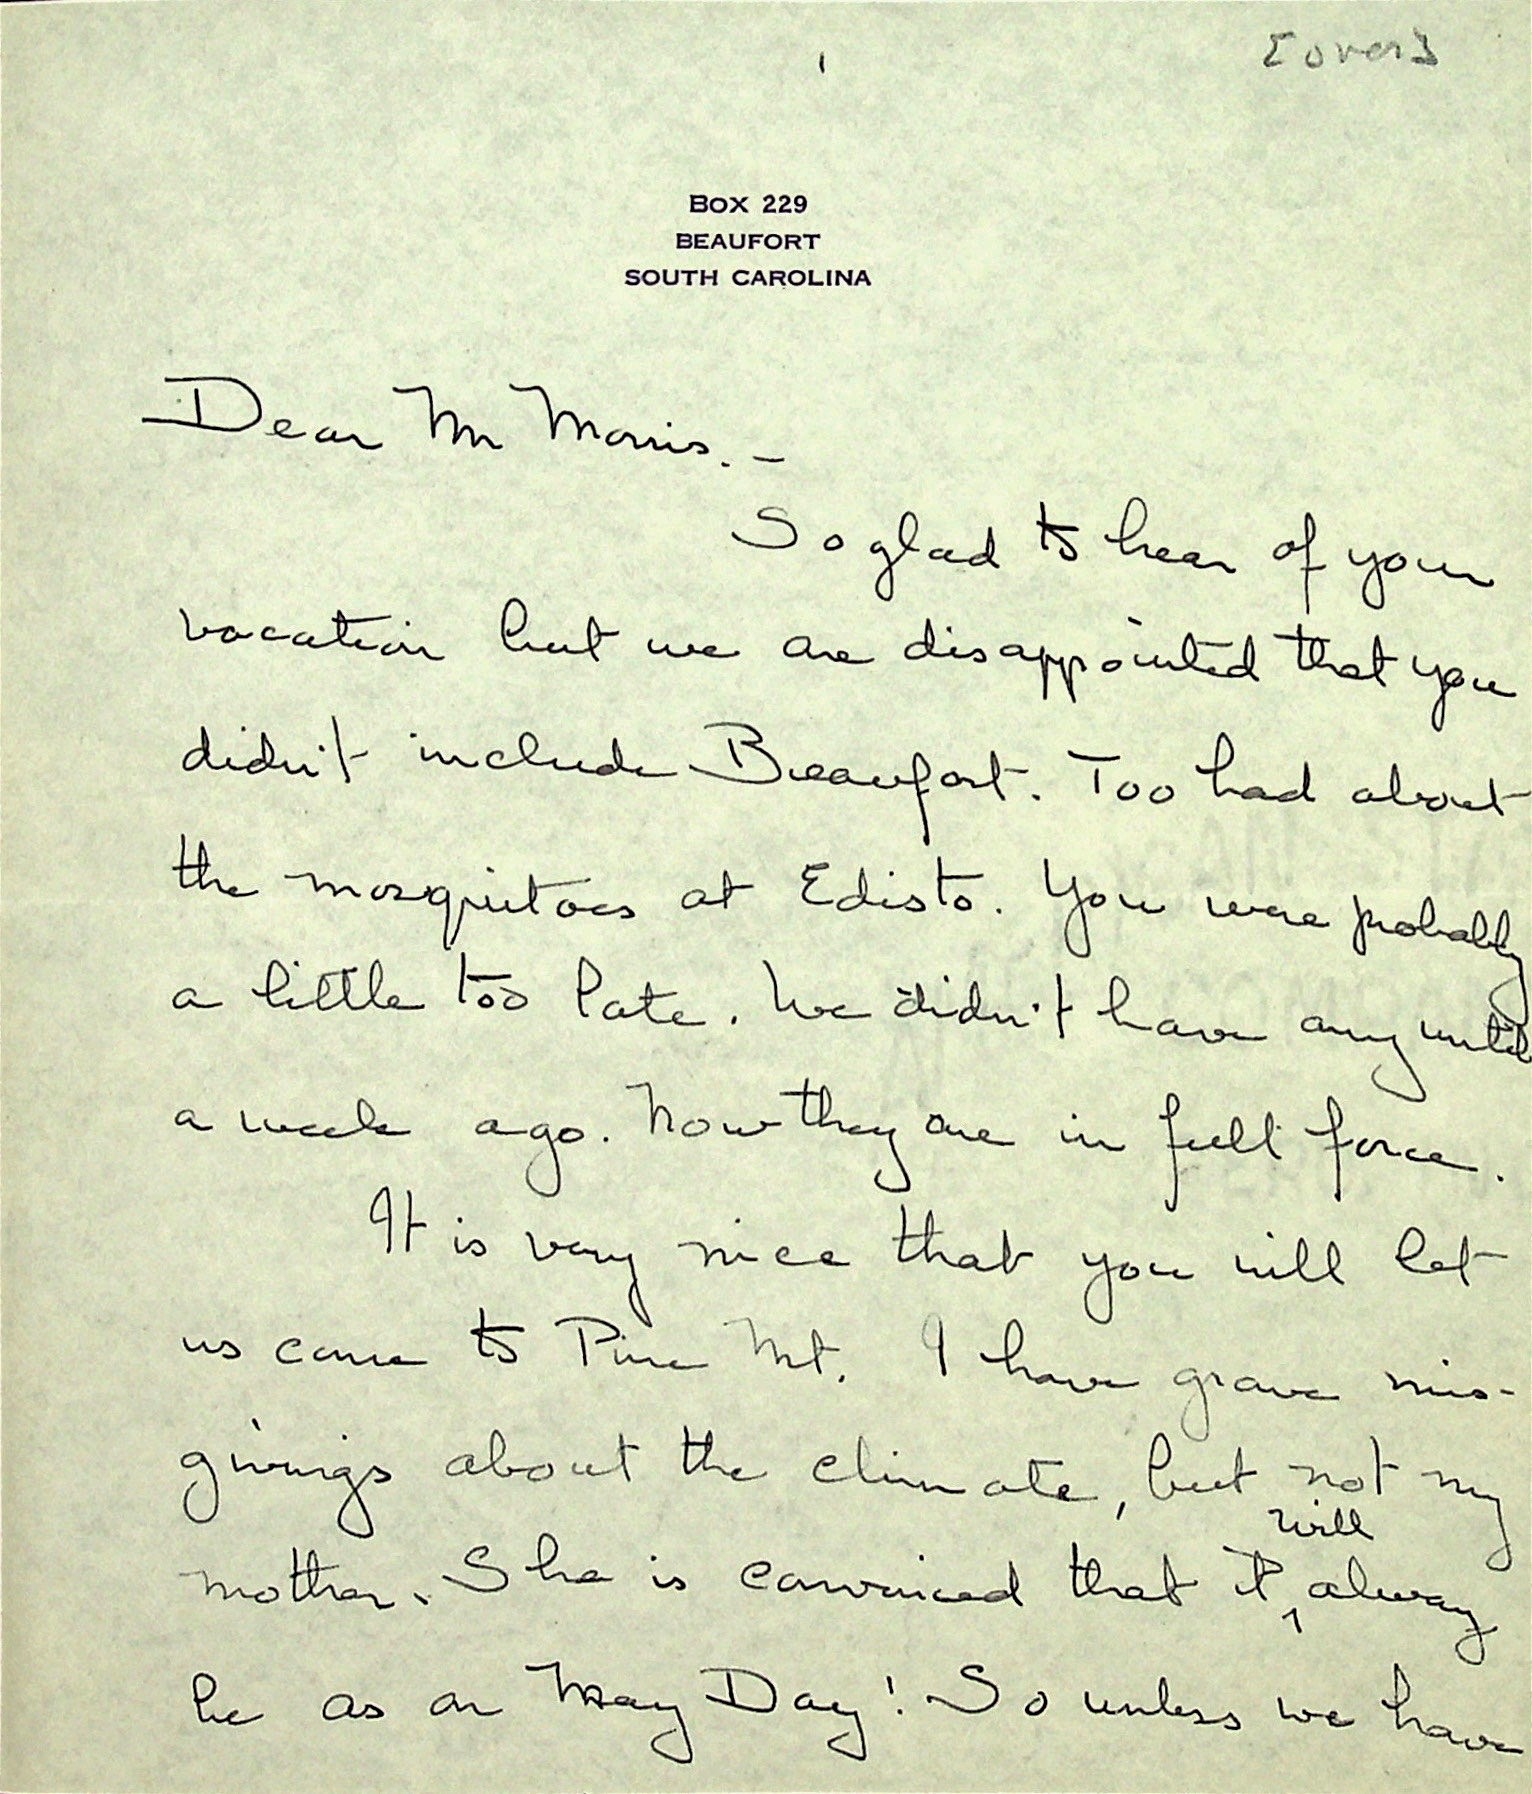 [over]
1
BOX 229
BEAUFORT
SOUTH CAROLINA
Dear Mr Morris. -
So glad to hear of your
vacation but we are disappointed that you
didn't include Beaufort. Too bad about
the mosquitoes at Edisto. You were probably
a little too late. We didn't have any until
a week ago. Now they are in full force.
It is very nice that you will let
us come to Pine Mt. I have grave mis-
givings about the climate, but not my
will
mother. She is convinced that it ^ alway
be as on May Day! So unless we have